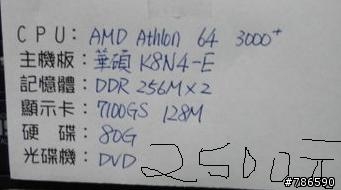 CPU：AMD Athlon 64 3000+
主機板：華碩 K8N4-E
記憶體：DDR 256M×2
顯示卡：7100GS 128M
硬 碟：80G
光碟機：DVD
2500元
#786590